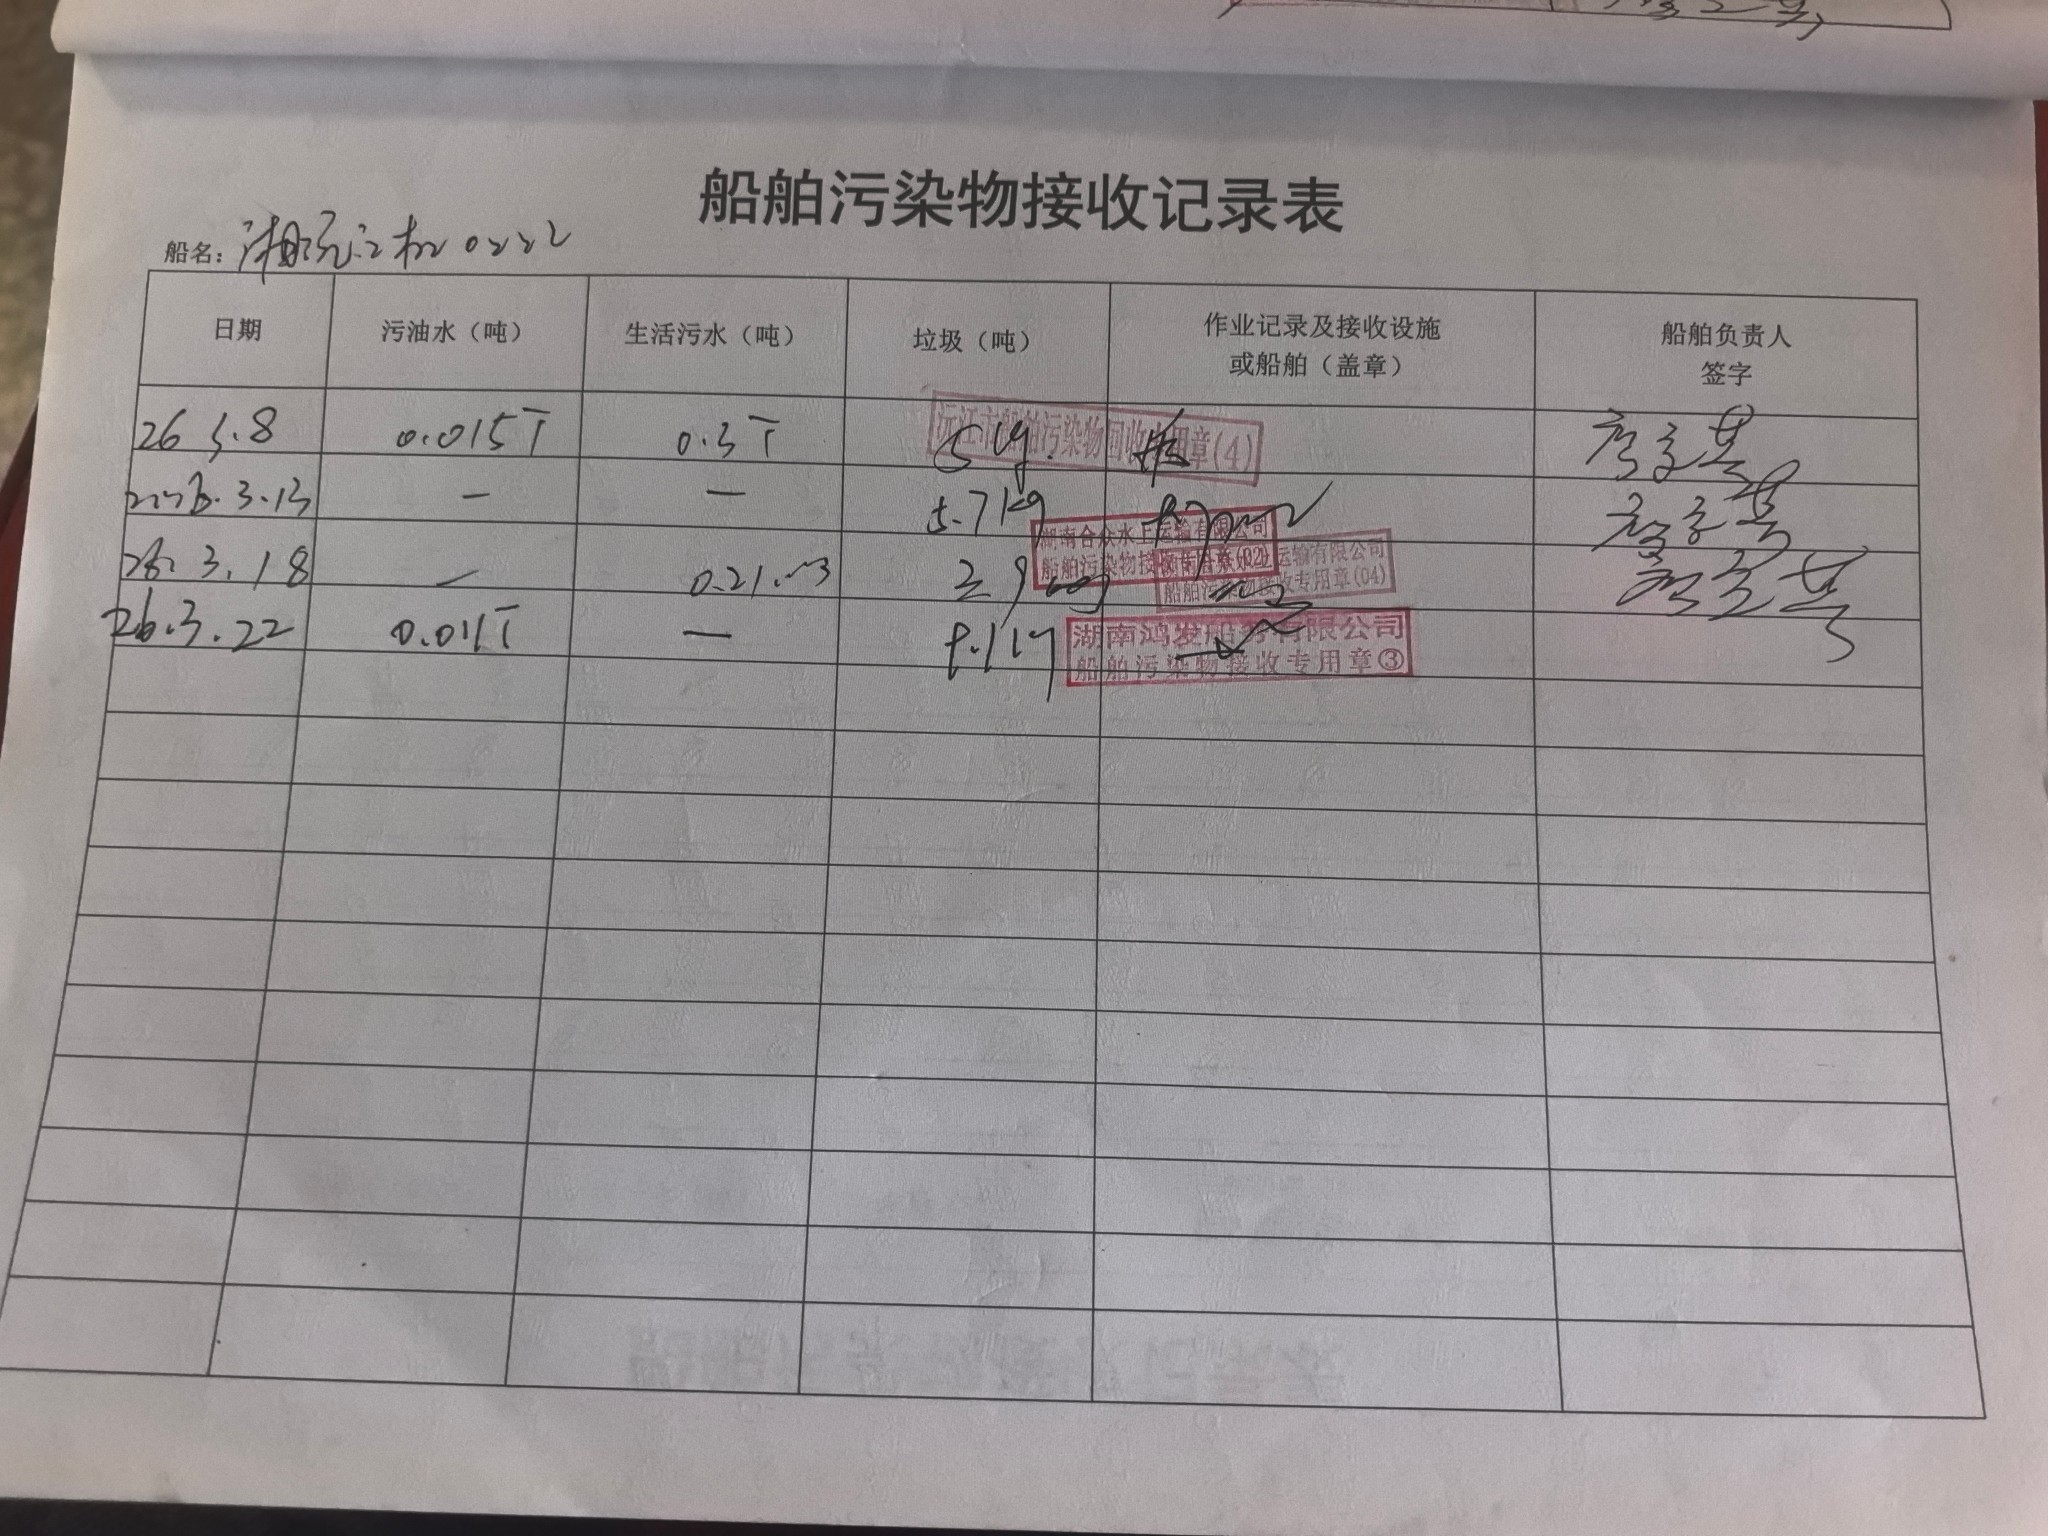 船舶污染物接收记录表
船名：湘沅江机0222
日期 污油水（吨） 生活污水（吨） 垃圾（吨） 作业记录及接收设施或船舶（盖章） 船舶负责人签字
26 3.8 0.015T 0.3T 5kg
沅江市船舶污染物回收专用章(4)
2026.3.13 — — 5.7kg
湖南合众水上运输有限公司
船舶污染物接收专用章(02)
26.3.18 — 0.21m3
运输有限公司
船舶污染物接收专用章(04)
26.3.22 0.01T —
湖南鸿发船务有限公司
船舶污染物接收专用章③